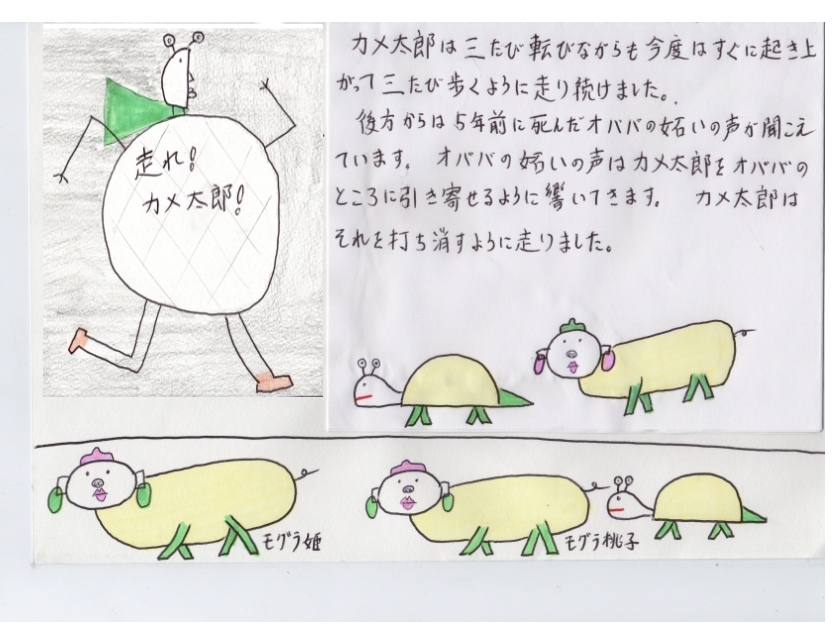 走れ!
カメ太郎!
カメ太郎は三たび転びながらも今度はすぐに起き上
がって三たび歩くように走り続けました。
後方からは5年前に死んだオババの妬いの声が聞こえ
ています。 オババの妬いの声はカメ太郎をオババの
ところに引き寄せるように響いてきます。 カメ太郎は
それを打ち消すように走りました。
モグラ姫
モグラ桃子